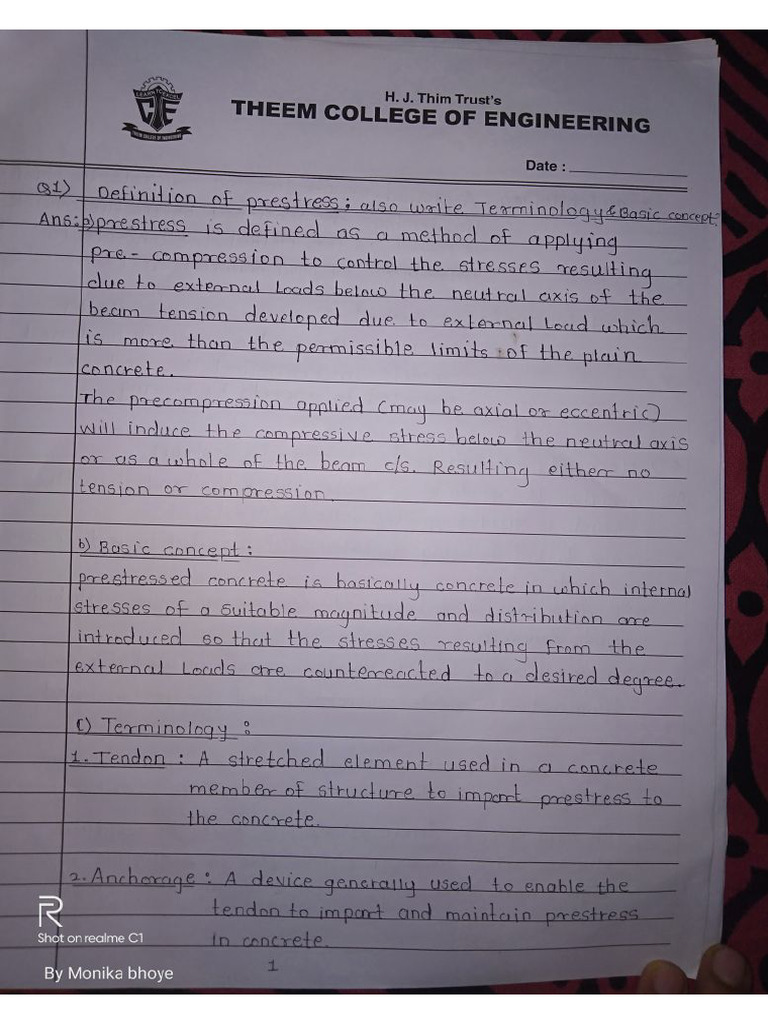 H. J. Thim Trust's
THEEM COLLEGE OF ENGINEERING
THEEM COLLEGE OF ENGINEERING
Date :
Q1) Definition of prestress; also write Terminology & Basic concept.
Ans: prestress is defined as a method of applying
pre-compression to control the stresses resulting
due to external Loads below the neutral axis of the
beam tension developed due to external Load which
is more than the permissible limits of the plain
concrete.
The precompression applied (may be axial or eccentric)
will induce the compressive stress below the neutral axis
or as a whole of the beam c/s. Resulting either no
tension or compression.
b) Basic concept :
prestressed concrete is basically concrete in which internal
stresses of a suitable magnitude and distribution are
introduced so that the stresses resulting from the
external Loads are countereacted to a desired degree.
c) Terminology :
1. Tendon : A stretched element used in a concrete
member of structure to impart prestress to
the concrete.
2. Anchorage : A device generally used to enable the
tendon to impart and maintain prestress
in concrete.
1
R
Shot on realme C1
By Monika bhoye